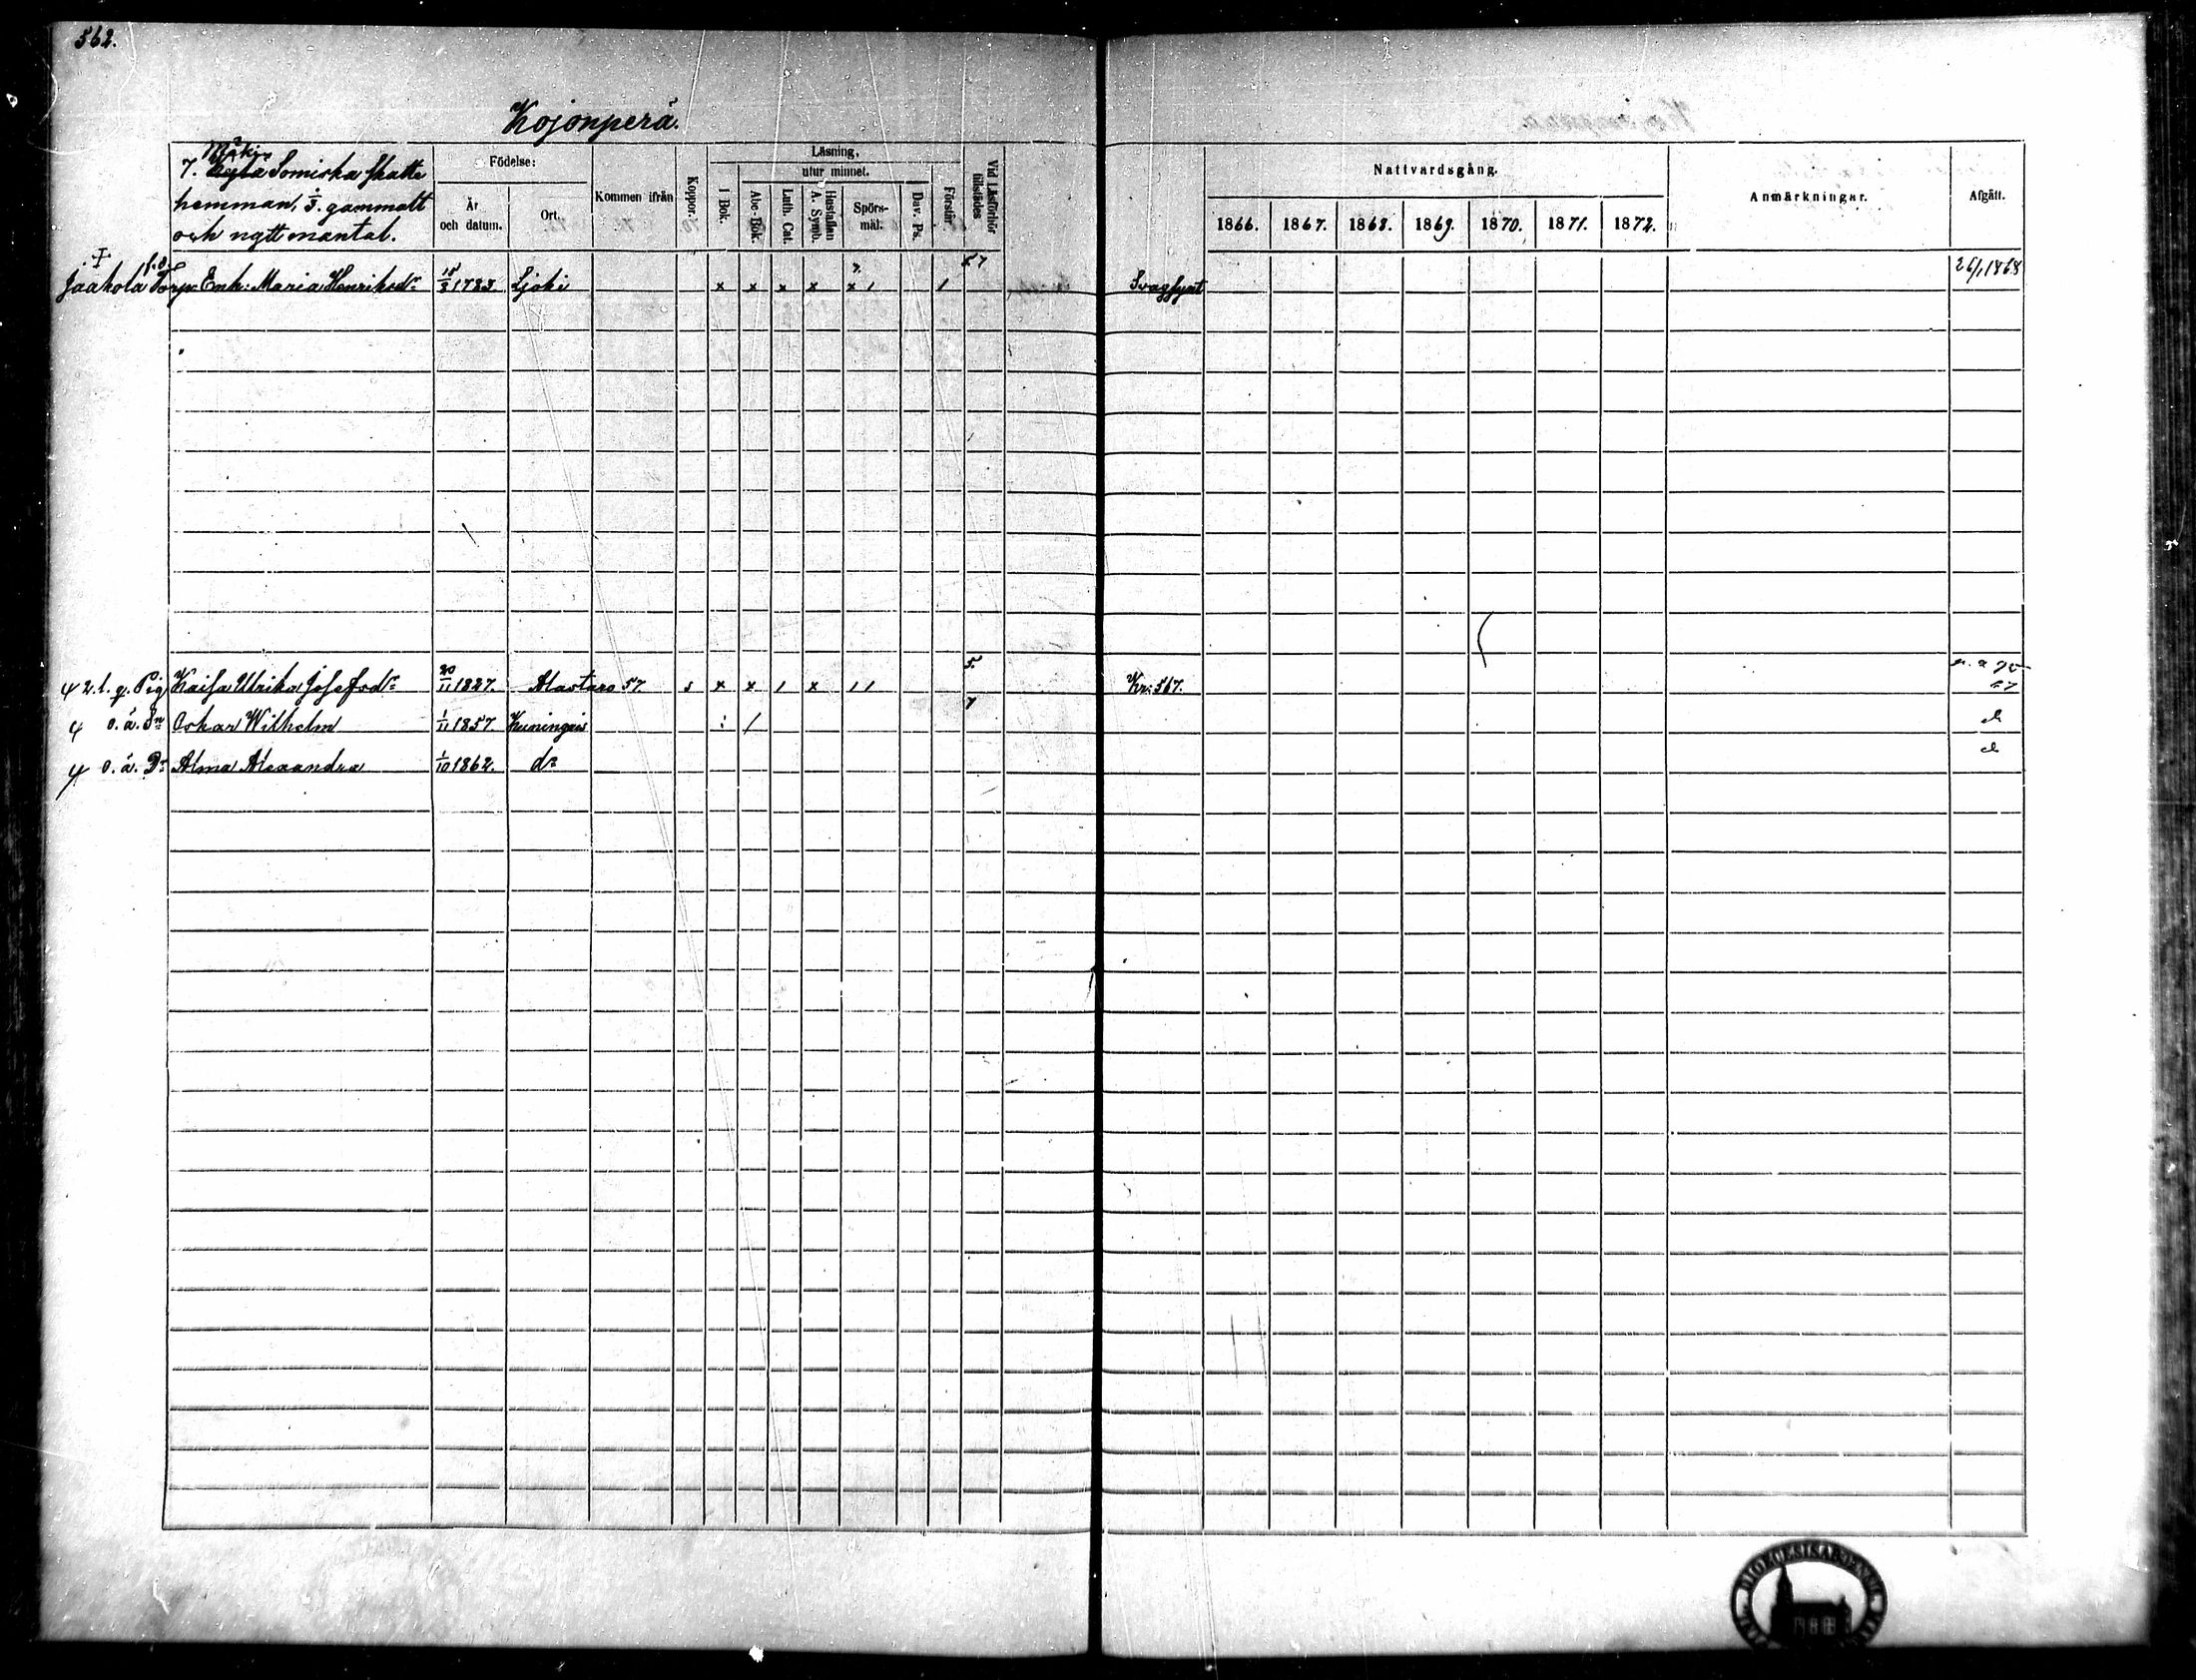 562.
Kojonperä.
7. Mäki Somiska skatte
hemman, 1/3. gammalt
och nytt mantal.
Födelse:
År
och datum.
Ort.
Kommen ifrån
Koppor.
Läsning,
utur minnet.
I Bok.
Abc-Bok.
Luth. Cat.
Hustaflan
A. Symb.
Spörs-
mål:
Dav. Ps.
Förstår.
Vid Läsförhör
tillstädes
Nattvardsgång.
1866. 1867. 1868. 1869. 1870. 1871. 1872.
Anmärkningar.
Afgått.
Jaakola f.d. Torp. Enk: Maria Henriksdr 1783. Ljoki x x x x x 1 1 57 Svagsynt 26/1 1868
2. l. q. Pig Kaisa Ulrika Josefsdr 20/11 1827. Alastaro 57. s x x 1 x 11 5. Kr: 567.
o. ä. Sn Oskar Wilhelm 1/11 1857. Kuningais 7
o. ä. Dr Alma Alexandra 1/10 1862. do